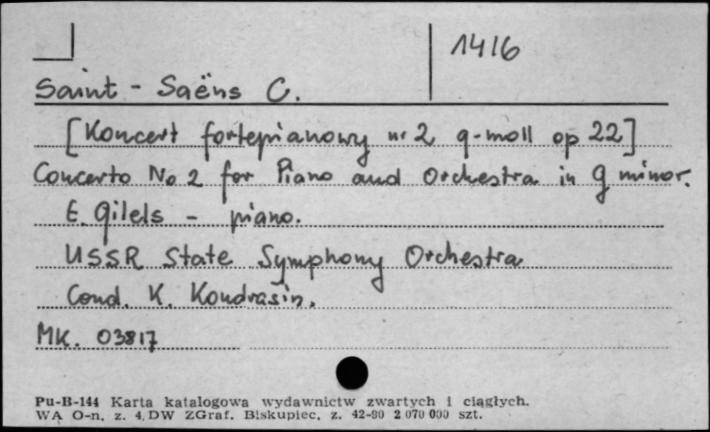 1416
Saint-Saëns C.
[Koncert fortepianowy nr 2 g-moll op 22]
Concerto No 2 for Piano and Orchestra in g minor.
E. Gilels - piano.
USSR State Symphony Orchestra
Cond. K. Kondrašin.
MK. 03817
Pu-B-144 Karta katalogowa wydawnictw zwartych i ciągłych.
WA O-n. z. 4. DW ZGraf. Biskupiec. z. 42-80 2 070 000 szt.